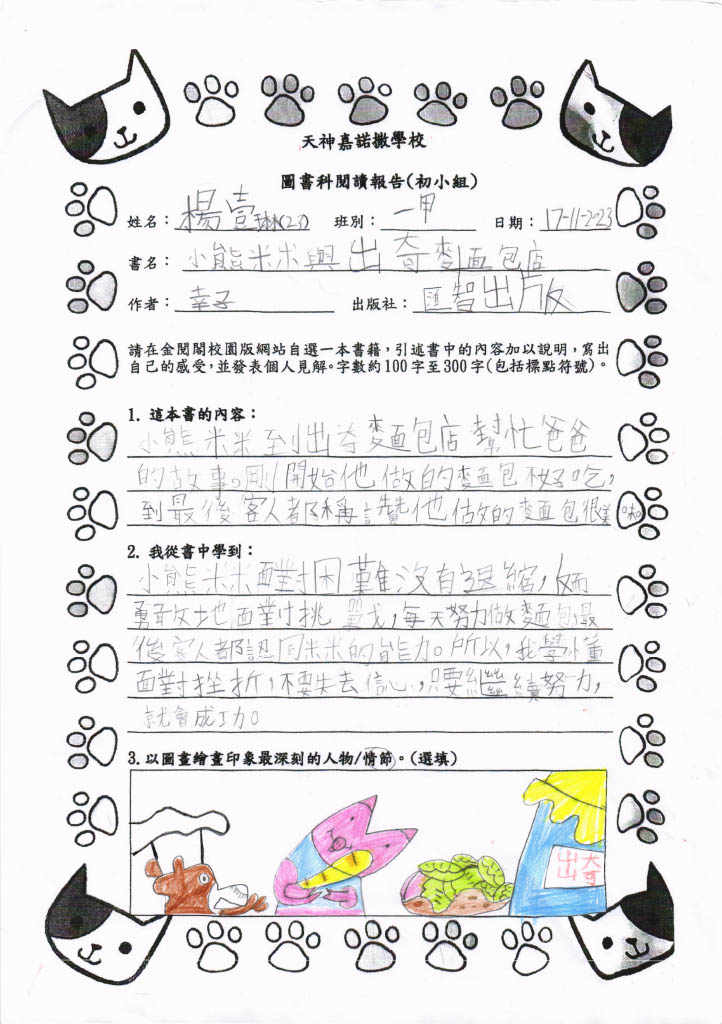 天神嘉諾撒學校
圖書科閱讀報告(初小組)
姓名：楊壹琳(23) 班別：一甲 日期：17-11-2023
書名：小熊米米與出奇麵包店
作者：幸子 出版社：匯智出版
請在金閱閣校園版網站自選一本書籍，引述書中的內容加以說明，寫出
自己的感受，並發表個人見解。字數約100字至300字(包括標點符號)。
1. 這本書的內容：
小熊米米到出奇麵包店幫忙爸爸
的故事。剛開始他做的麵包不好吃，
到最後客人都稱讚他做的麵包很美味。
2. 我從書中學到：
小熊米米面對困難沒有退縮，而
勇敢地面對挑戰，每天努力做麵包，最
後客人都認同米米的能力。所以，我學懂
面對挫折，不要失去信心，只要繼續努力，
就會成功。
3. 以圖畫繪畫印象最深刻的人物/情節。(選填)
出奇